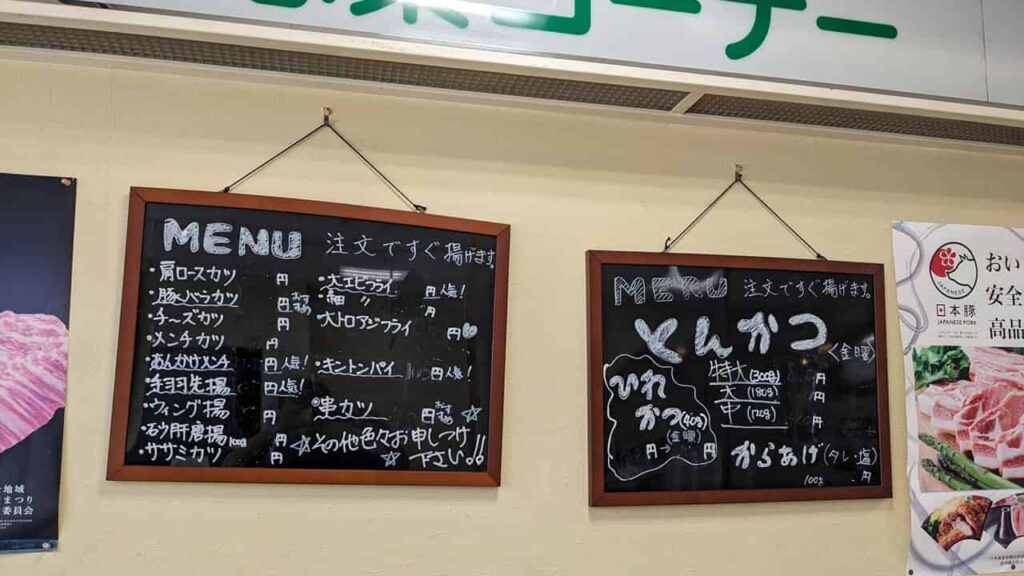 コーナー
MENU 注文ですぐ揚げます。
・肩ロースカツ 円
・豚バラカツ 円
・チーズカツ 円
・メンチカツ 円
・あんかけメンチ 円 人気!
・手羽先揚 円 人気!
・ウィング揚 円
・砂肝唐揚 100g 円
・ササミカツ 円
・大エビフライ 円 人気!
・細 〃 円
大トロアジフライ 円
・キントンパイ 円 人気!
串カツ 円 おすすめ
☆その他色々お申しつけ
☆下さい。!!
MENU 注文ですぐ揚げます。
とんかつ
〈金曜〉
特大(300g) 円
大(180g) 円
中(120g) 円
ひれ
かつ(40g)
(金曜)
円
からあげ(タレ・塩)
100g 円
地域
まつり
委員会
おい
安全
高品
JAPANESE
日本豚
JAPANESE PORK